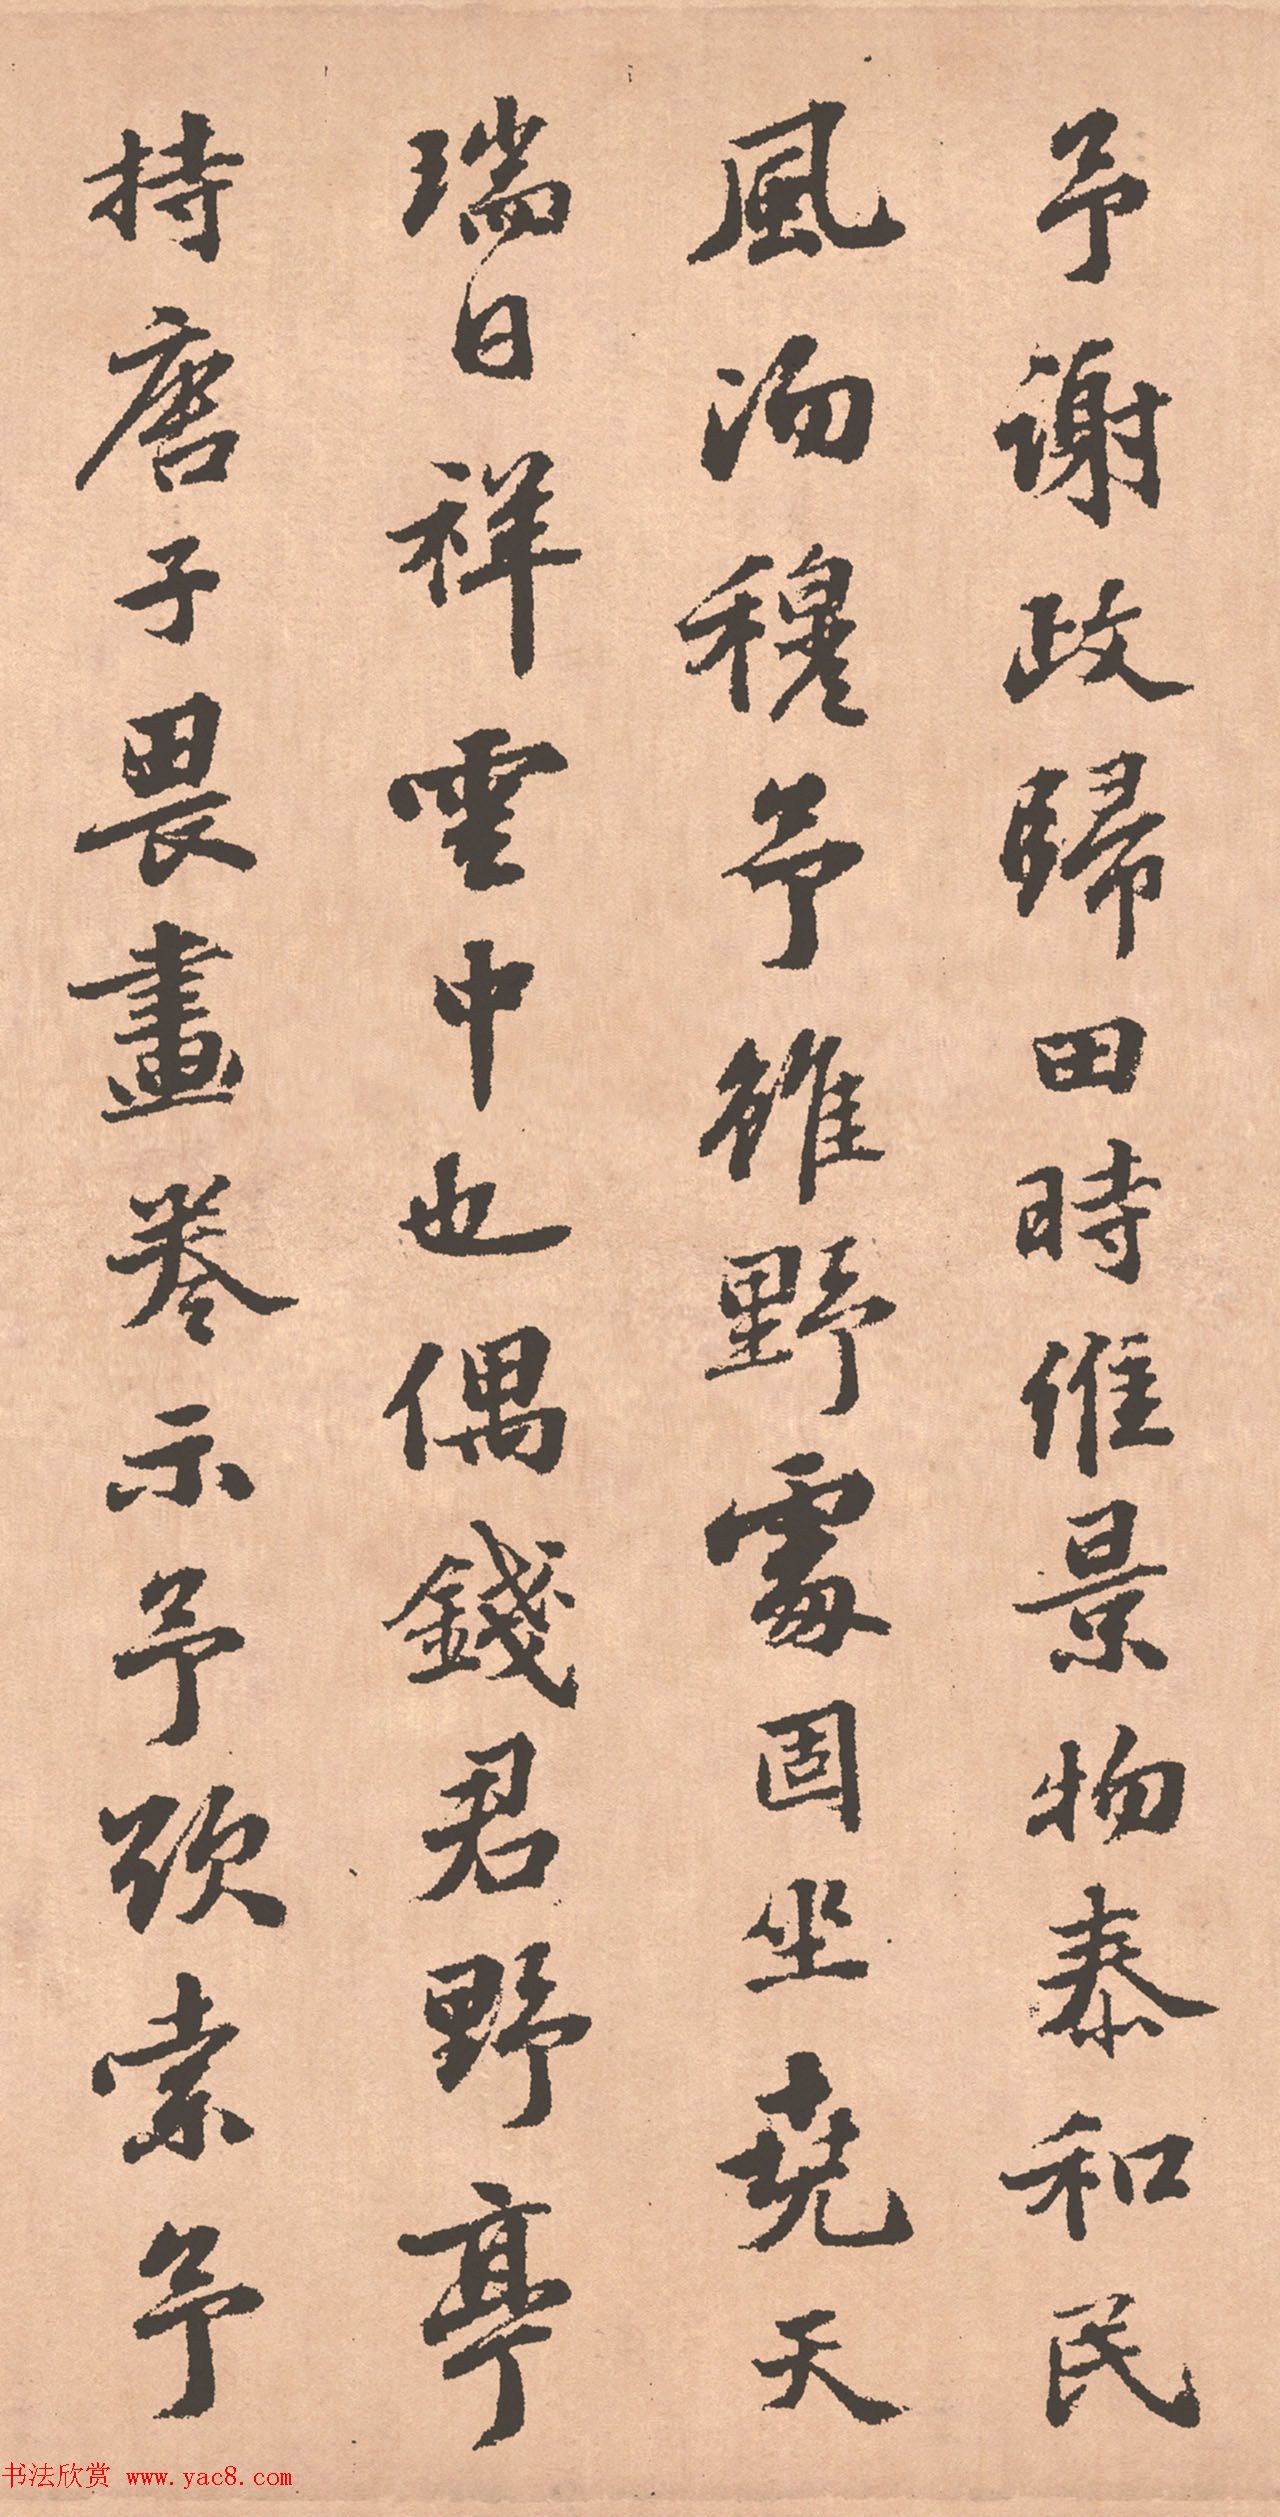 予謝政歸田時維景物泰和民
風沕穆予雖野處固坐堯天
瑞日祥雲中也偶錢君野亭
持唐子畏畫卷示予欵索予
书法欣赏 www.yac8.com